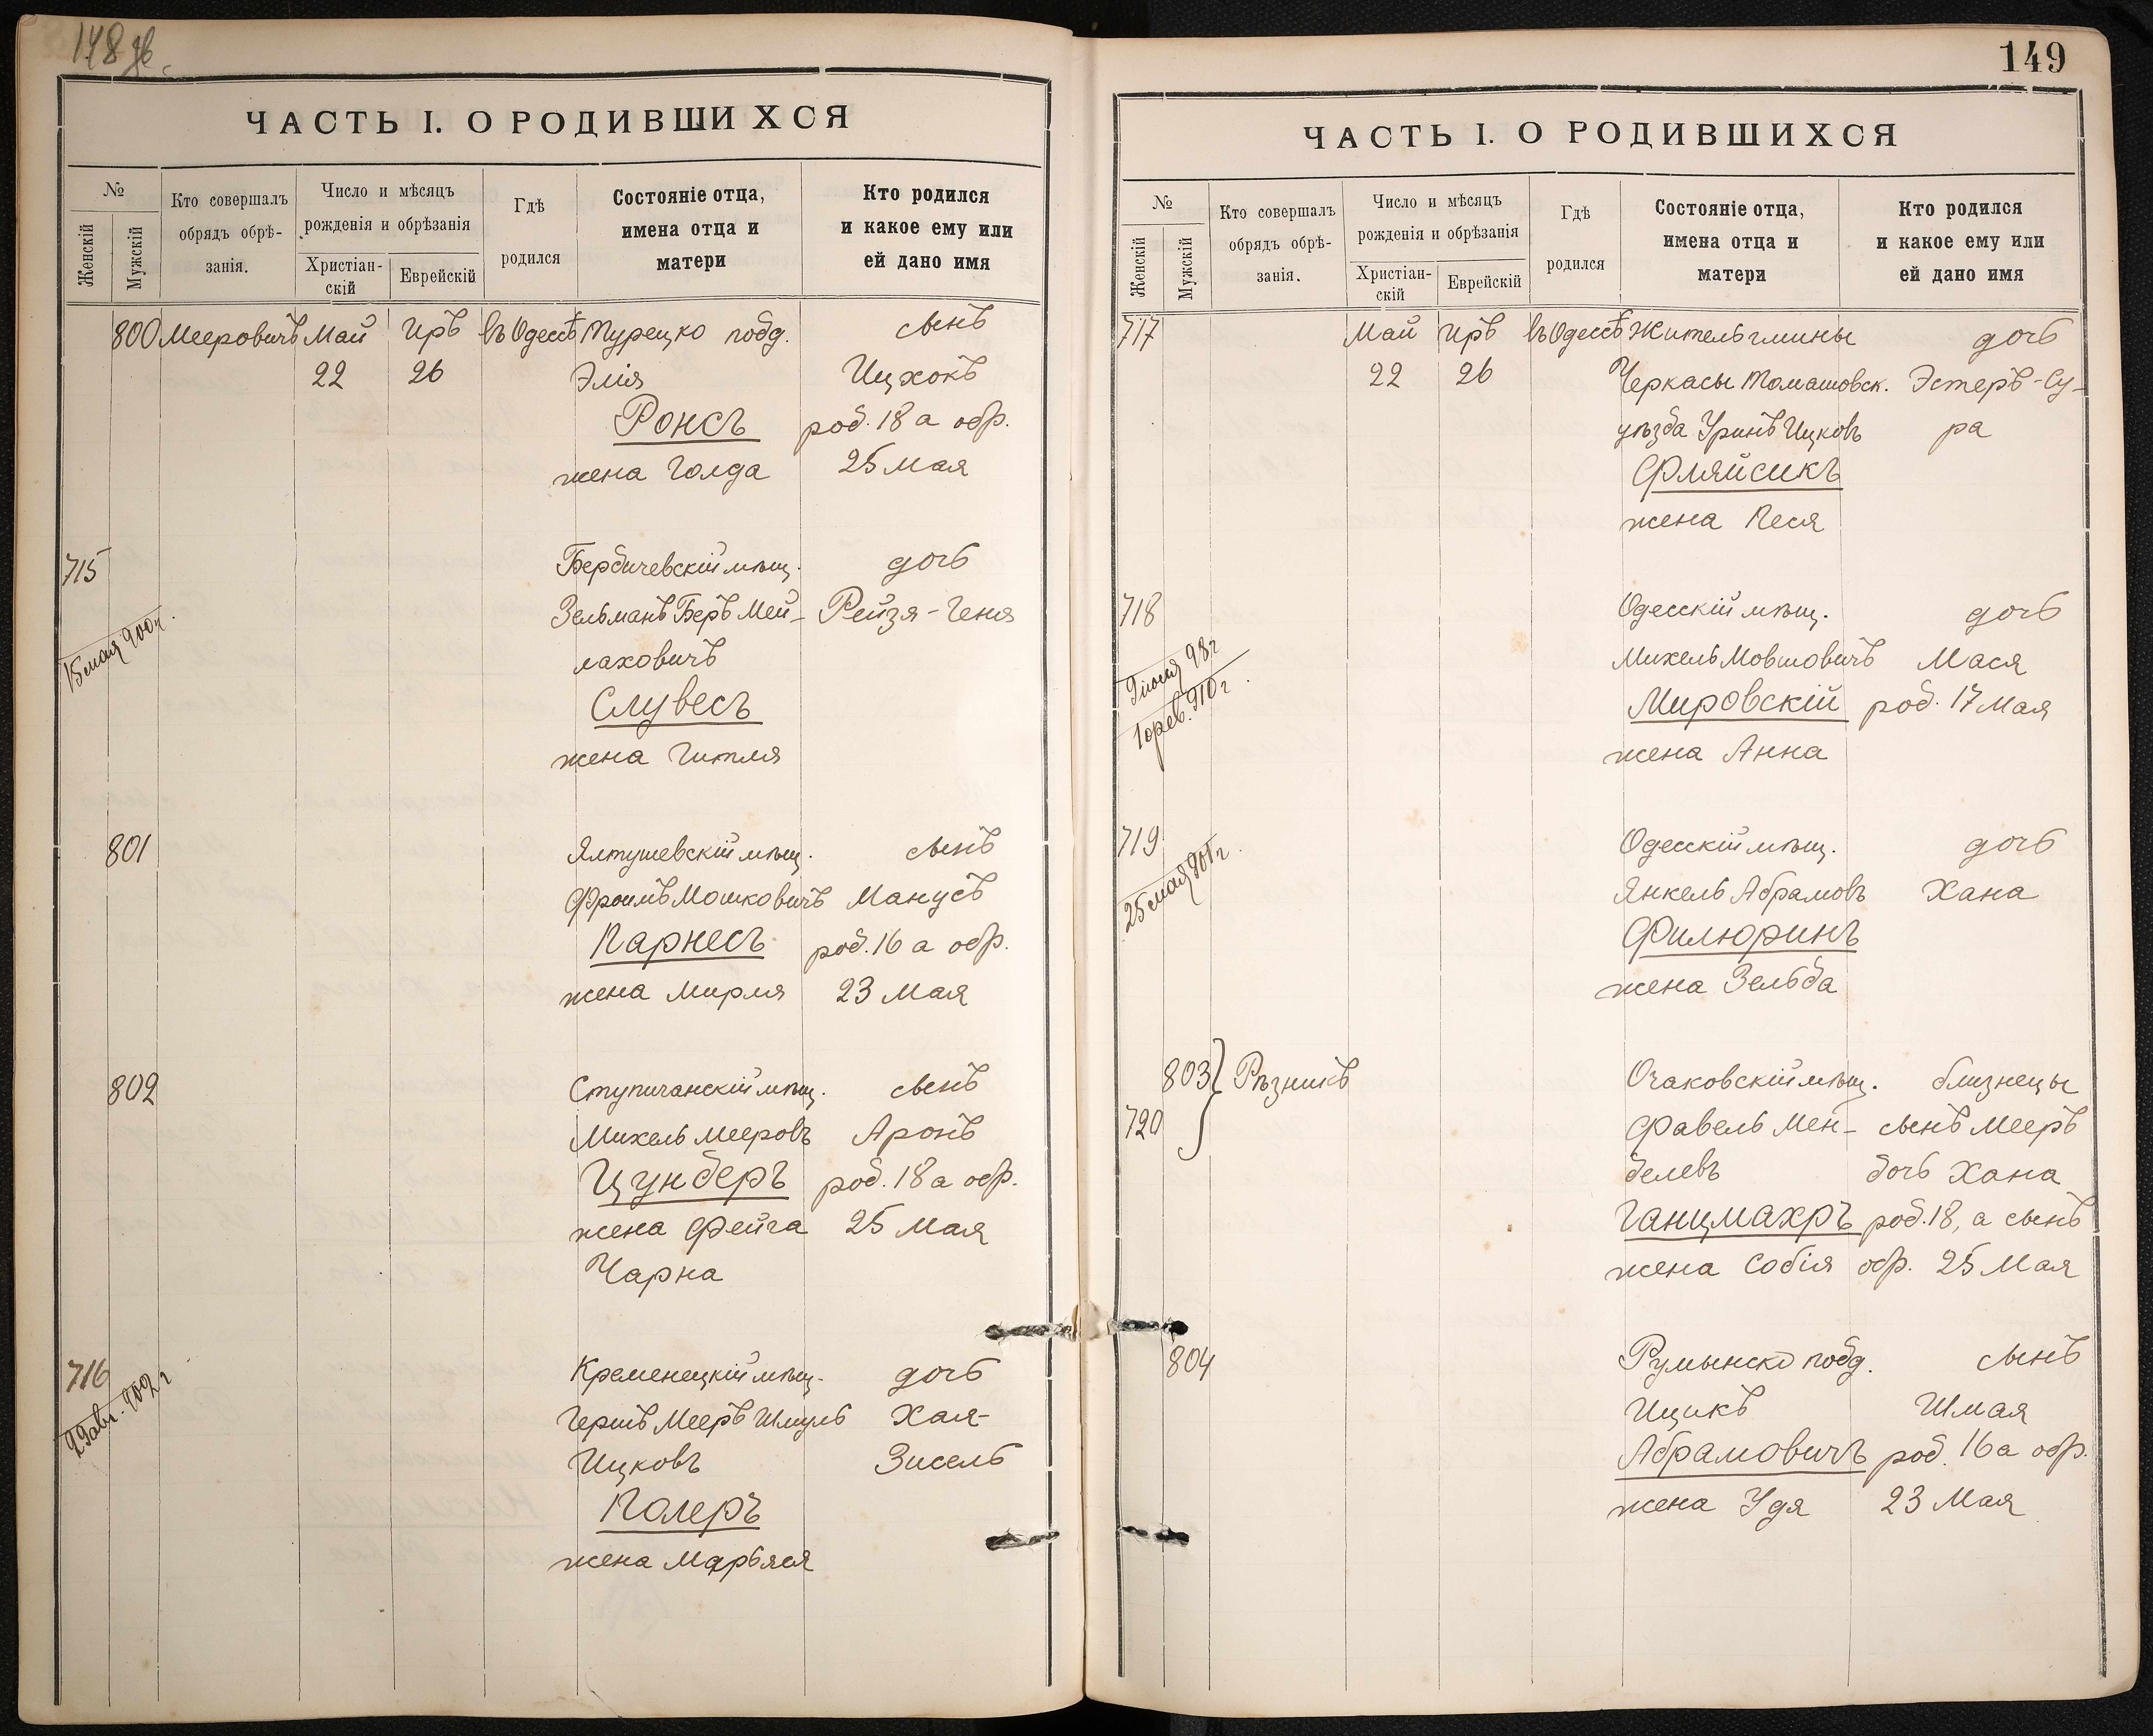 148
ЧАСТЬ I. О РОДИВШИХСЯ
№
Женскій
Мужскій
Кто совершалъ
обрядъ обрѣ-
занія.
Число и мѣсяцъ
рожденія и обрѣзанія
Христіан-
скій
Еврейскій
Гдѣ
родился
Состояніе отца,
имена отца и
матери
Кто родился
и какое ему или
ей дано имя
800 Мееровичъ Май Иръ въ Одессѣ Турецко подд. сынъ
22 26 Элія Ицхокъ
Ронсъ род. 18 а обр.
жена Голда 25 Мая
715 Бердичевскій мѣщ. дочь
Зельманъ Беръ Мей- Рейзя-Геня
15 мая 900 г.
лаховичъ
Слувесъ
жена Гитля
801 Ялтушевскій мѣщ. сынъ
Фроимъ Мошковичъ Манусъ
Парнесъ род. 16 а обр.
жена Мирля 23 Мая
802 Ступичанскій мѣщ. сынъ
Михель Мееровъ Аронъ
Цундеръ род. 18 а обр.
жена Фейга 25 Мая
Чарна
716 Кременецкій мѣщ. дочь
29 авг. 902 г
Гершъ Мееръ Шмуль Хая-
Ицковъ Зисель
Полеръ
жена Марьяся
149
ЧАСТЬ I. О РОДИВШИХСЯ
№
Женскій
Мужскій
Кто совершалъ
обрядъ обрѣ-
занія.
Число и мѣсяцъ
рожденія и обрѣзанія
Христіан-
скій
Еврейскій
Гдѣ
родился
Состояніе отца,
имена отца и
матери
Кто родился
и какое ему или
ей дано имя
717 Май Иръ въ Одессѣ Житель гмины дочь
22 26 Черкасы Томашовск. Эстеръ-Су-
уѣзда Уринъ Ицковъ ра
Фляйсикъ
жена Песя
718 Одесскій мѣщ. дочь
9 іюля 98 г
Михель Мовшовичъ Мася
1 фев. 910 г.
Мировскій род. 17 Мая
жена Анна
719 Одесскій мѣщ. дочь
25 мая 901 г.
Янкель Абрамовъ Хана
Филюринъ
жена Зельда
803 Рѣзникъ Очаковскій мѣщ. близнецы
720 Фавель Мен- сынъ Мееръ
делевъ дочь Хана
Ганцмахръ род. 18, а сынъ
жена Собія обр. 25 Мая
804 Румынско подд. сынъ
Ицикъ Шмая
Абрамовичъ род. 16 а обр.
жена Удя 23 Мая